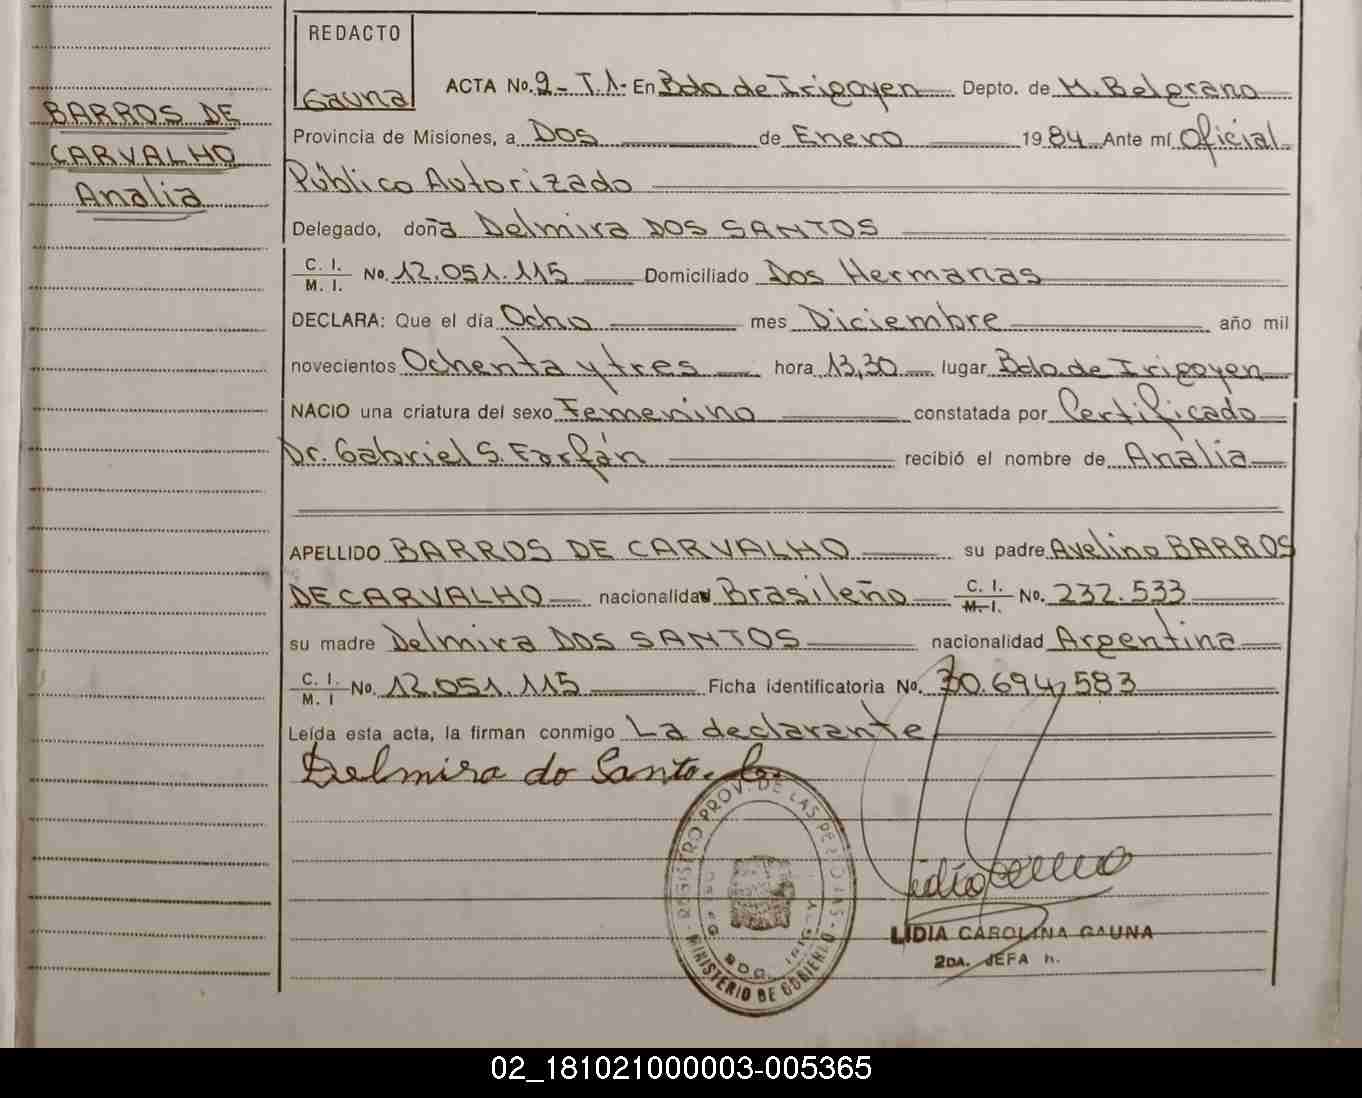 REDACTO
Gauna
BARROS DE
CARVALHO
Analia
ACTA No. 2- T.1- En Bdo de Irigoyen Depto. de M. Belgrano
Provincia de Misiones, a Dos de Enero 1984 Ante mí Oficial
Público Autorizado
Delegado, doña Delmira DOS SANTOS
C. I. / M. I. No. 12.051.115 Domiciliado Dos Hermanas
DECLARA: Que el día Ocho mes Diciembre año mil
novecientos Ochenta y tres hora 13,30 lugar Bdo. de Irigoyen
NACIO una criatura del sexo Femenino constatada por Certificado
Dr. Gabriel S. Farfán recibió el nombre de Analia
APELLIDO BARROS DE CARVALHO su padre Avelino BARROS
DE CARVALHO nacionalidad Brasileño C. I. / M. I. No. 232.533
su madre Delmira DOS SANTOS nacionalidad Argentina
C. I. / M. I No. 12.051.115 Ficha identificatoria No. 30.694,583
Leída esta acta, la firman conmigo La declarante
Delmira do Santo
REGISTRO PROV. DE LAS PERSONAS
MINISTERIO DE GOBIERNO
LIDIA CAROLINA GAUNA
2DA. JEFA h.
02_181021000003-005365